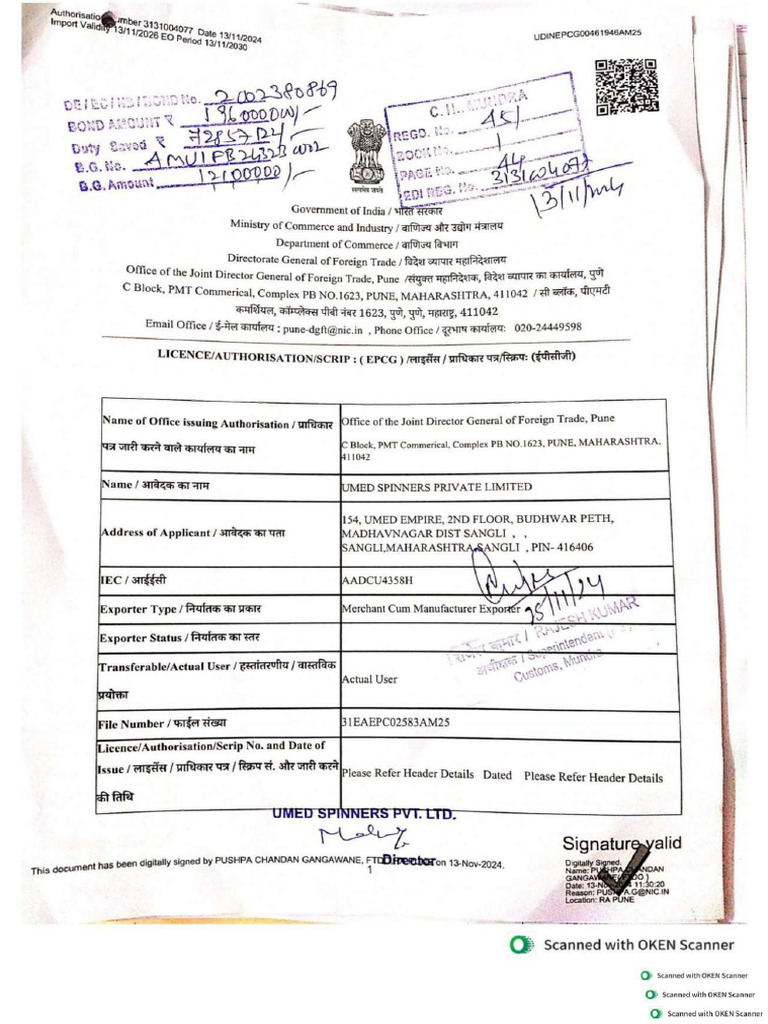 Authorisation Number 3131004077 Date 13/11/2024
Import Validity 13/11/2026 EO Period 13/11/2030
UDINEPCG00461946AM25
DE / EC / NB / BOND No. 2002380869
BOND AMOUNT ₹ 19600000/-
Duty Saved ₹ 7285724/-
B.G. No.
B.G. Amount 12100000/-
C.H. MUNDRA
REGD. No. 451
BOOK No. 1
PAGE No. 44
EDI REG. No. 3131004077
13/11/2024
सत्यमेव जयते
Government of India / भारत सरकार
Ministry of Commerce and Industry / वाणिज्य और उद्योग मंत्रालय
Department of Commerce / वाणिज्य विभाग
Directorate General of Foreign Trade / विदेश व्यापार महानिदेशालय
Office of the Joint Director General of Foreign Trade, Pune /संयुक्त महानिदेशक, विदेश व्यापार का कार्यालय, पुणे
C Block, PMT Commerical, Complex PB NO.1623, PUNE, MAHARASHTRA, 411042 / सी ब्लॉक, पीएमटी
कमर्शियल, कॉम्प्लेक्स पीबी नंबर 1623, पुणे, पुणे, महाराष्ट्र, 411042
Email Office / ई-मेल कार्यालय : pune-dgft@nic.in , Phone Office / दूरभाष कार्यालयः 020-24449598
LICENCE/AUTHORISATION/SCRIP : ( EPCG ) /लाइसेंस / प्राधिकार पत्र/स्क्रिपः (ईपीसीजी)
Name of Office issuing Authorisation / प्राधिकार
पत्र जारी करने वाले कार्यालय का नाम
Office of the Joint Director General of Foreign Trade, Pune
C Block, PMT Commerical, Complex PB NO.1623, PUNE, MAHARASHTRA,
411042
Name / आवेदक का नाम
UMED SPINNERS PRIVATE LIMITED
Address of Applicant / आवेदक का पता
154, UMED EMPIRE, 2ND FLOOR, BUDHWAR PETH,
MADHAVNAGAR DIST SANGLI , ,
SANGLI,MAHARASHTRA,SANGLI , PIN- 416406
IEC / आईईसी
AADCU4358H
Exporter Type / निर्यातक का प्रकार
Merchant Cum Manufacturer Exporter
25/11/24
Exporter Status / निर्यातक का स्तर
कुमार / RAJESH KUMAR
अधीक्षक / Superintendent
Customs, Mundra
Transferable/Actual User / हस्तांतरणीय / वास्तविक
प्रयोक्ता
Actual User
File Number / फाईल संख्या
31EAEPC02583AM25
Licence/Authorisation/Scrip No. and Date of
Issue / लाइसेंस / प्राधिकार पत्र / स्क्रिप सं. और जारी करने
की तिथि
Please Refer Header Details Dated Please Refer Header Details
UMED SPINNERS PVT. LTD.
Director
This document has been digitally signed by PUSHPA CHANDAN GANGAWANE, on 13-Nov-2024.
1
Signature valid
Digitally Signed.
Name: PUSHPA CHANDAN
GANGAWANE
Date: 13-Nov-2024 11:30:20
Reason: PUSHPA.G@NIC.IN
Location: RA PUNE
Scanned with OKEN Scanner
Scanned with OKEN Scanner
Scanned with OKEN Scanner
Scanned with OKEN Scanner